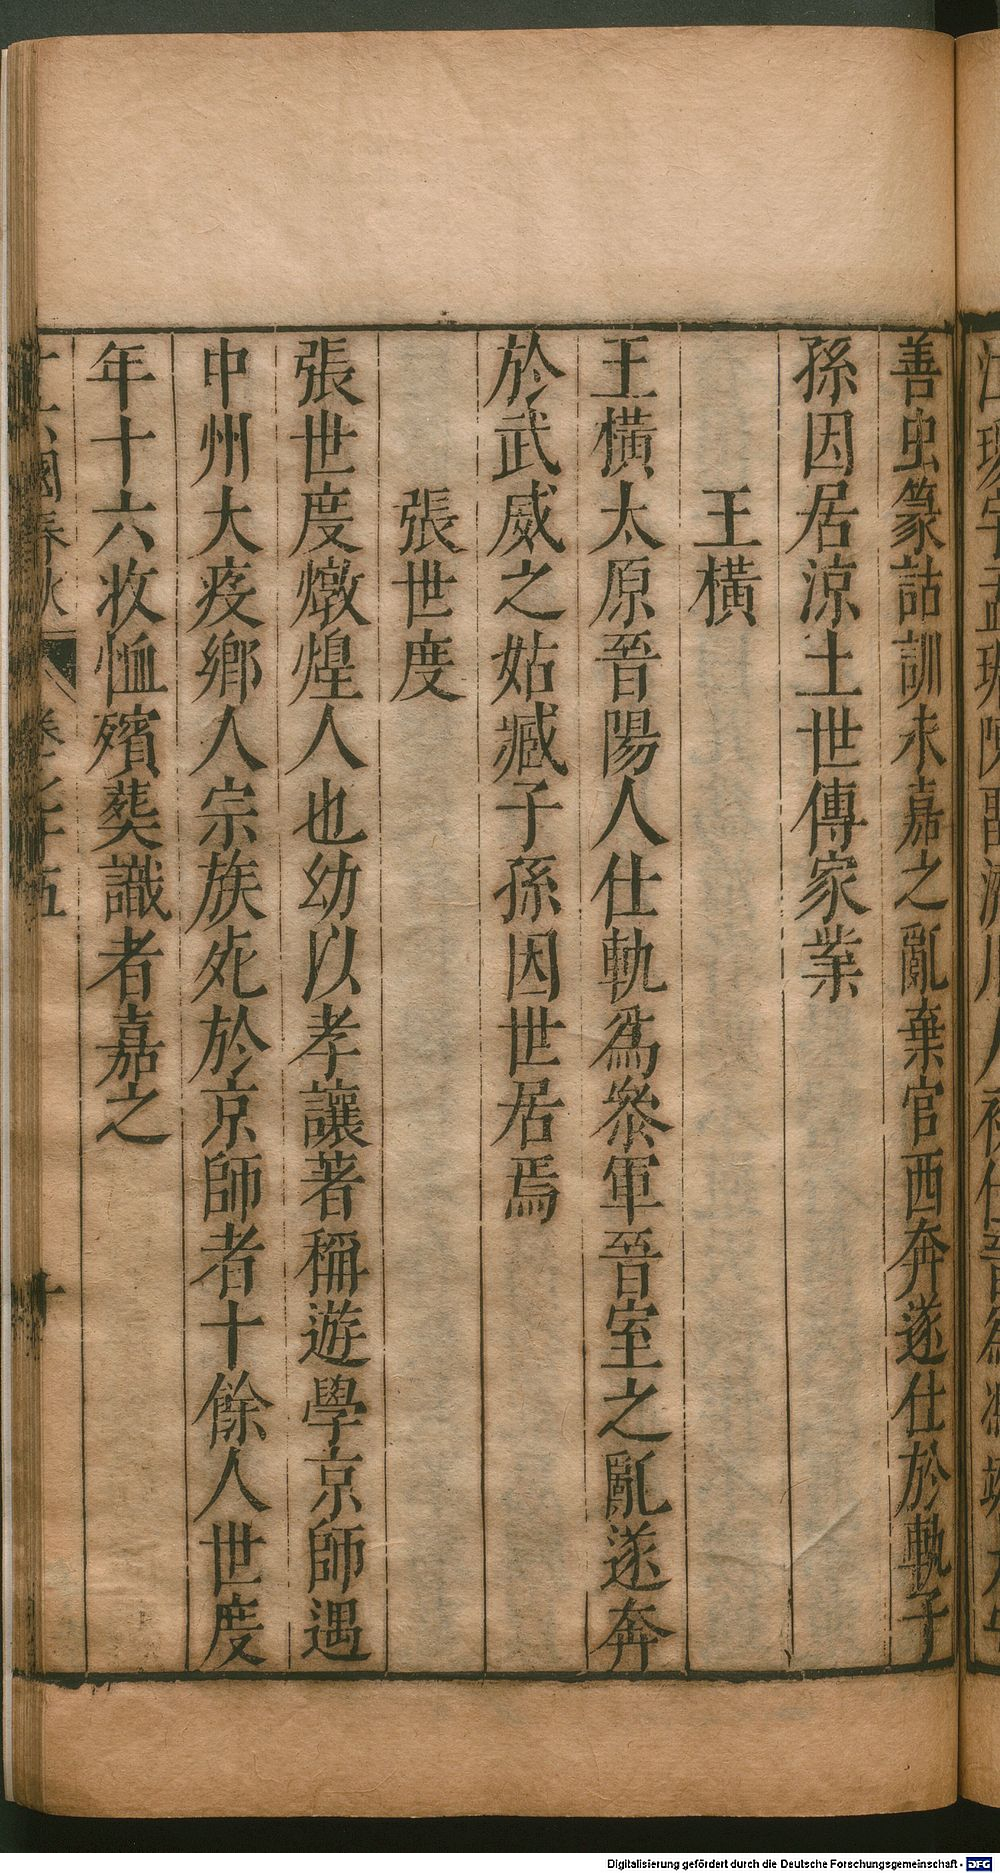 善虫篆詁訓未嘉之亂棄官西奔遂仕於軌子
孫因居涼土世傳家業
王橫
王橫太原晉陽人仕軌爲叅軍晉室之亂遂奔
於武威之姑臧子孫因世居焉
張世度
張世度燉煌人也幼以孝讓著稱遊學京師遇
中州大疫鄉人宗族死於京師者十餘人世度
年十六收恤殯葬識者嘉之
國春秋
卷七十五
十
Digitalisierung gefördert durch die Deutsche Forschungsgemeinschaft - DFG